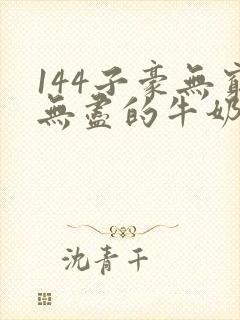 144子豪無窮
無盡的牛奶
沈青千